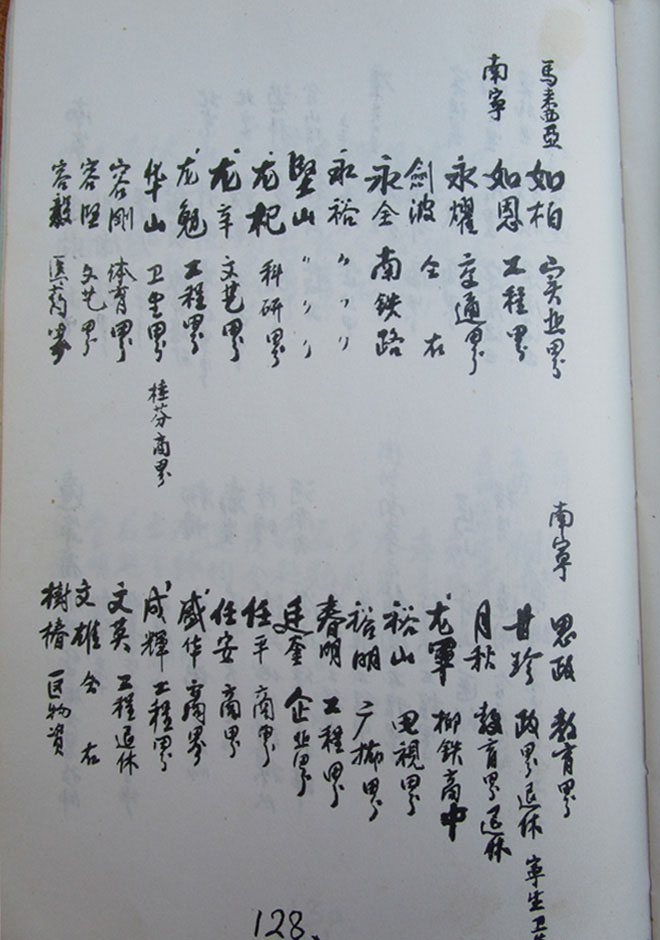 馬来西亞 如柏 实业界
南寧 如恩 工程界
永耀 交通界
劍波 仝右
永全 南铁路
永裕 〃〃〃
坚山 〃〃〃
龙杞 科研界
龙辛 文艺界
龙勉 工程界
华山 卫生界 桂芬商界
容剛 体育界
容坚 文艺界
容毅 医药界
南寧 思政 教育界
甘珍 政界退休 寧生卫
月秋 教育界退休
龙軍 柳鉄高中
裕山 电視界
裕明 广播界
春明 工程界
廷奎 企业界
任平 商界
任安 商界
盛华 商界
成輝 工程界
文英 工程退休
文雄 仝右
樹椿 区物資
128